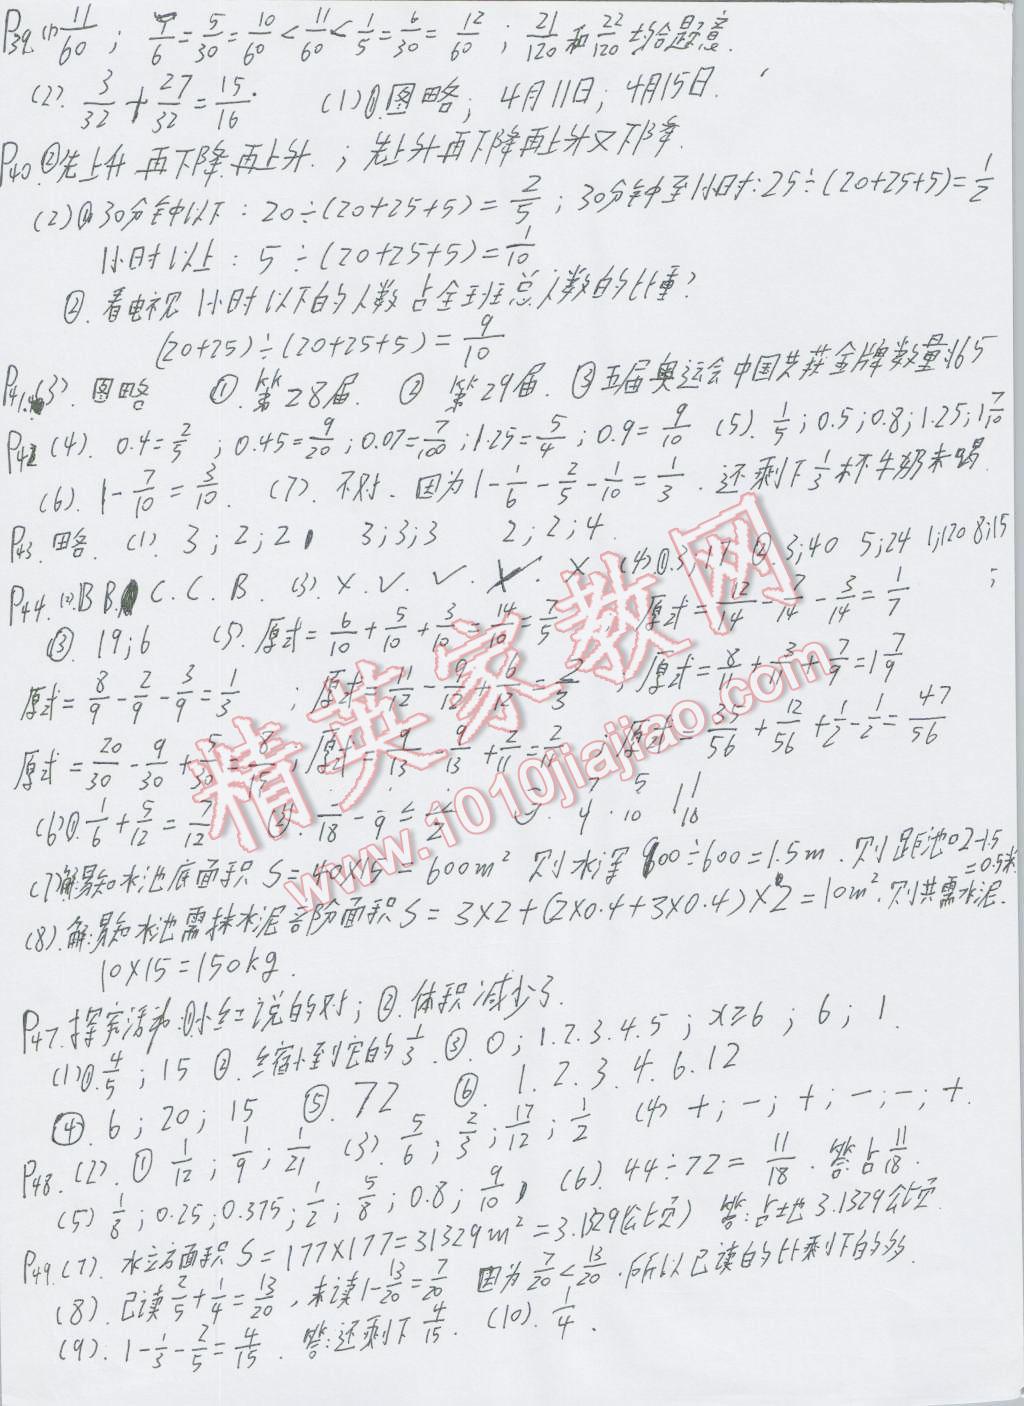 P39 (1) 11/60 ; 1/6=5/30=10/60<11/60<1/5=6/30=12/60 ; 21/120和22/120均合题意.
(2). 3/32+27/32=15/16. (1)①.图略; 4月11日; 4月15日.
P40.②先上升再下降再上升. ; 先上升再下降再上升又下降.
(2)①30分钟以下: 20÷(20+25+5)=2/5 ; 30分钟至1小时: 25÷(20+25+5)=1/2
1小时以上: 5÷(20+25+5)=1/10
②. 看电视1小时以下的人数占全班总人数的比重?
(20+25)÷(20+25+5)=9/10
P41.(3). 图略 ①.第28届. ② 第29届. ③五届奥运会中国共获金牌数量165
P42 (4). 0.4=2/5 ; 0.45=9/20 ; 0.07=7/100 ; 1.25=5/4 ; 0.9=9/10 (5). 1/5 ; 0.5 ; 0.8 ; 1.25 ; 1 7/10
(6). 1-7/10=3/10. (7). 不对. 因为1-1/6-2/5-1/10=1/3. 还剩下1/3杯牛奶未喝.
P43 略. (1). 3;2;2 3;3;3 2;2;4.
P44. (2)B B. C. C. B. (3). ×. √. √. ×. (4).①.3;17 ②.3;40 5;24 1;120 8;15 ;
③. 19;6 (5). 原式=6/10+5/10+3/10=14/10=7/5 ; 原式=12/14-7/14-3/14=1/7
原式=8/9-2/9-3/9=1/3 ; 原式=11/12-9/12+6/12=2/3 ; 原式=8/11+3/11+7/9=1 7/9
原式=20/30-9/30+5/30=8/15 ; 原式=9/13-9/13+2/11=2/11 原式=35/56+12/56+1/2-1/2=47/56
(6)①.1/6+5/12=7/12
(7)解:易知水池底面积S=40×15=600m² 则水深900÷600=1.5m. 则距池口2-1.5=0.5米
(8).解:易知水池需抹水泥部份面积S=3×2+(2×0.4+3×0.4)×2=10m². 则共需水泥.
10×15=150kg.
P47.探究活动:①小红说的对; ②.体积减少了.
(1)①.4/5 ; 15 ②.缩小到它的1/3. ③. 0; 1.2.3.4.5; x≥6 ; 6; 1.
④.6; 20; 15 ⑤. 72 ⑥. 1. 2. 3. 4. 6. 12
P48. (2). ① 1/12 ; 1/9 ; 1/21 (3). 5/6 ; 2/3 ; 17/12 ; 1/2 (4) +; -; +; -; -; +.
(5) 1/8 ; 0.25; 0.375; 1/2 ; 5/8 ; 0.8; 9/10 (6). 44÷72=11/18. 答:占11/18.
P49.(7). 水立方面积S=177×177=31329m²=3.1329(公顷) 答:占地3.1329公顷.
(8).已读2/5+1/4=13/20, 未读1-13/20=7/20 因为7/20<13/20. 所以已读的比剩下的多.
(9). 1-1/3-2/5=4/15. 答:还剩下4/15. (10). 1/4.
精英家教网
www.1010jiajiao.com